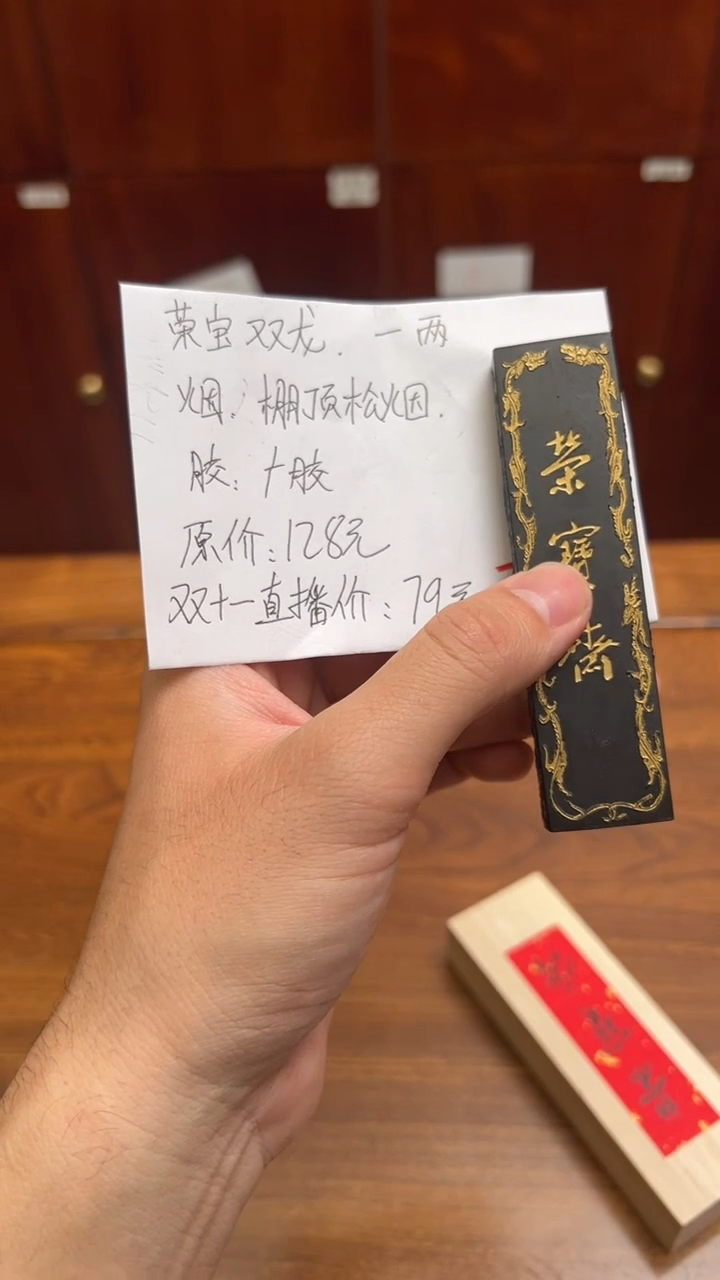 荣宝双龙. 一两
烟: 棚顶松烟.
胶: 十胶
原价: 128元
双十一直播价: 79元
荣寶斋